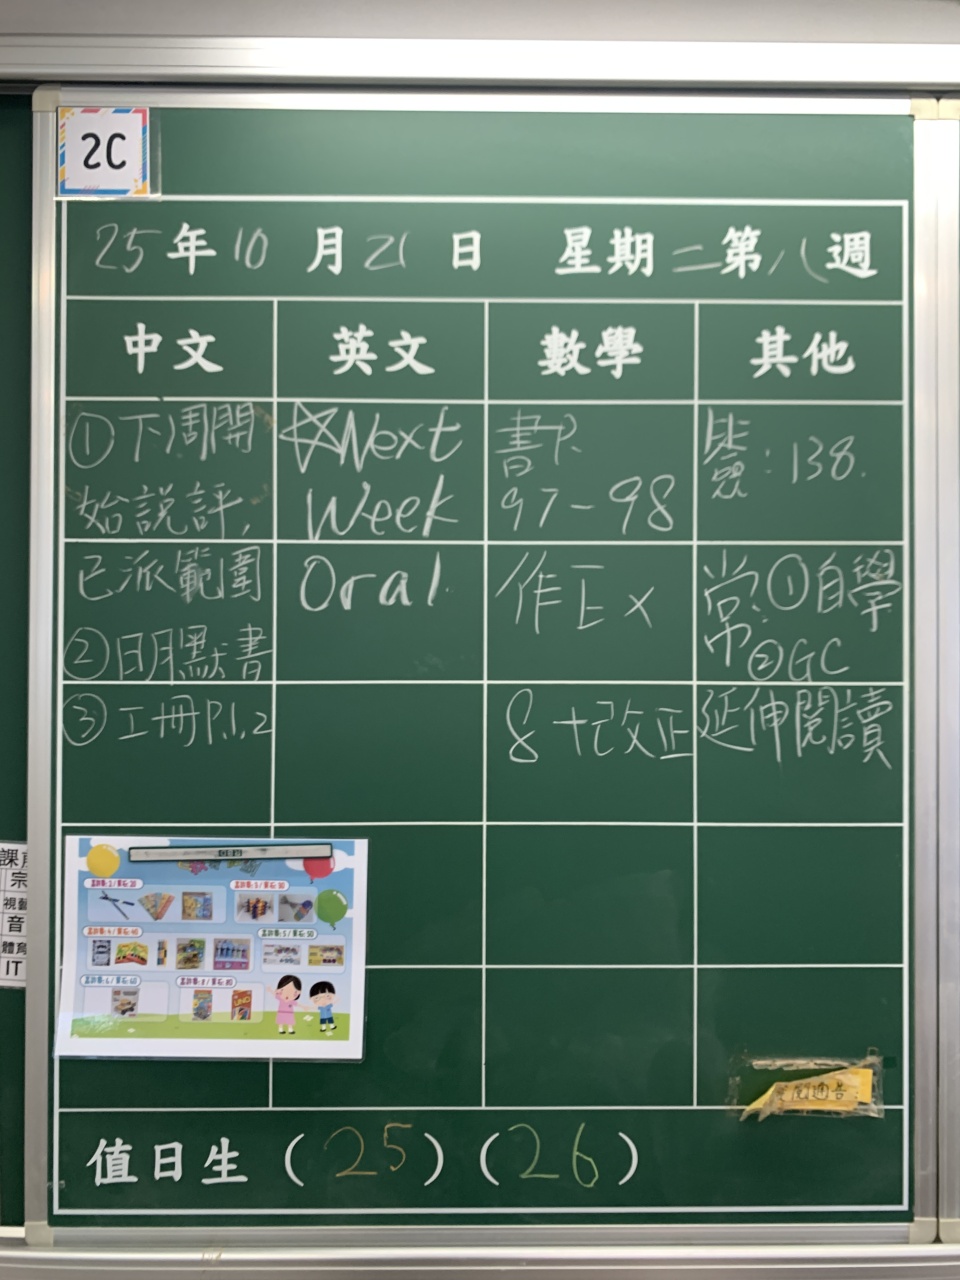 2C
25年10月21日 星期二第八週
中文 英文 數學 其他
①下周開
始說評,
已派範圍
②日月默書
③工冊P.1,2
☆Next
Week
Oral
書P.
97-98
作正×
8 十改正
: 138.
常:①自學
②GC
延伸閱讀
課
宗
視藝
音
體育
IT
值日生(25)(26)